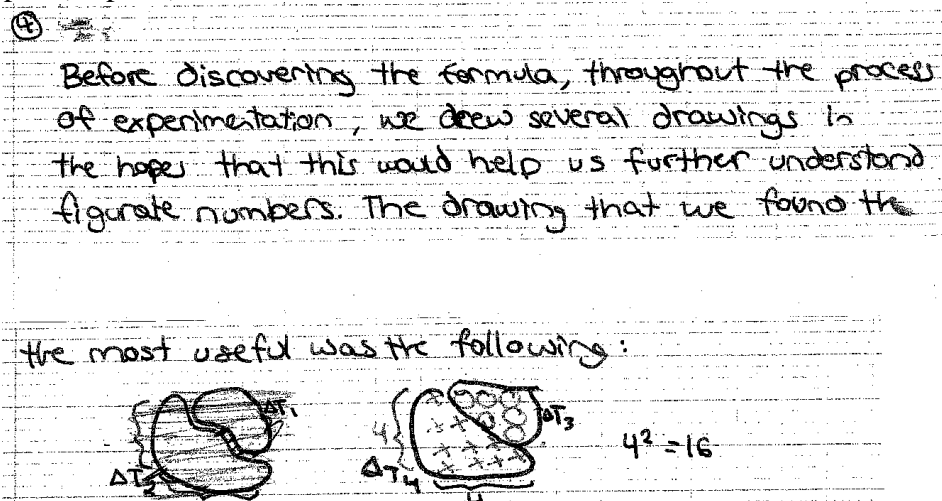 ④
Before discovering the formula, throughout the process
of experimentation, we drew several drawings in
the hopes that this would help us further understand
figurate numbers. The drawing that we found the
the most useful was the following:
ΔT₁
ΔT₂
4
ΔT₃
ΔT₄
4
4² = 16